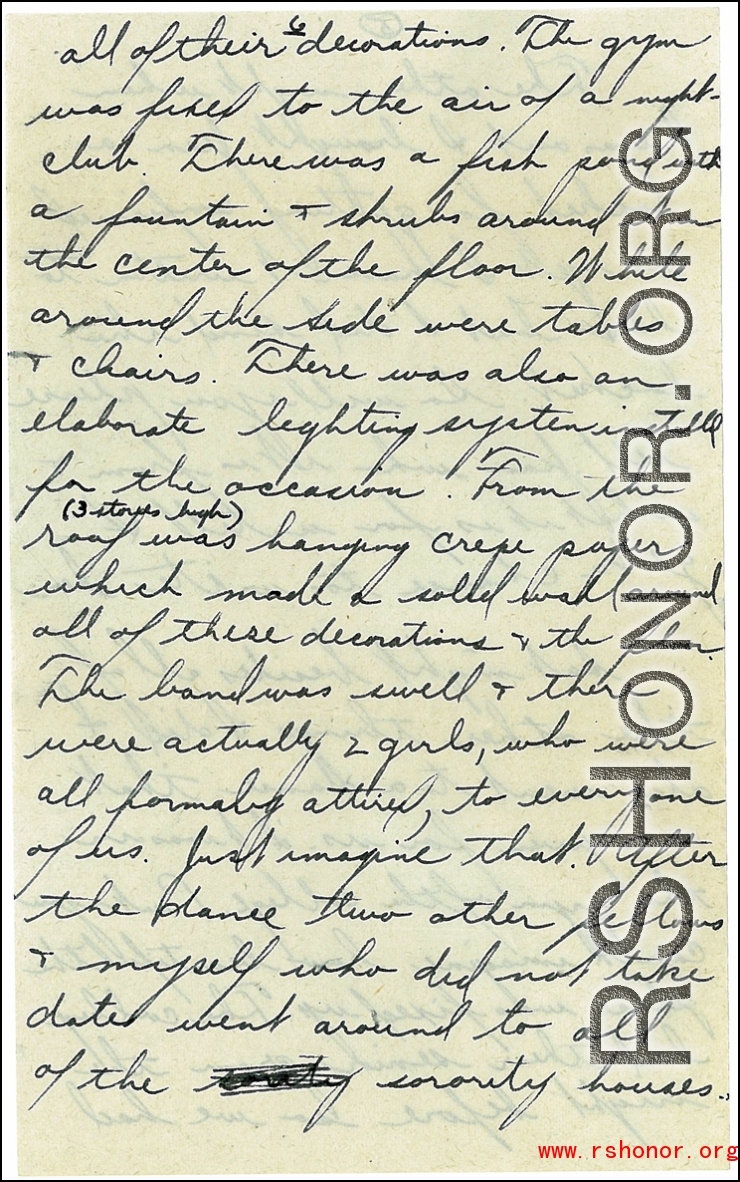 6
all of their decorations. The gym
was fixed to the air of a night-
club. There was a fish pond with
a fountain & shrubs around
the center of the floor. While
around the side were tables
& chairs. There was also an
elaborate lighting system install
for the occasion. From the
(3 stories high)
roof was hanging crepe paper
which made a solid wall around
all of these decorations & the floor.
The band was swell & there
were actually 2 girls, who were
all formaly attired, to everyone
of us. Just imagine that. After
the dance two other fellows
& myself who did not take
dates went around to all
of the sorority houses.
RSHONOR.ORG
www.rshonor.org